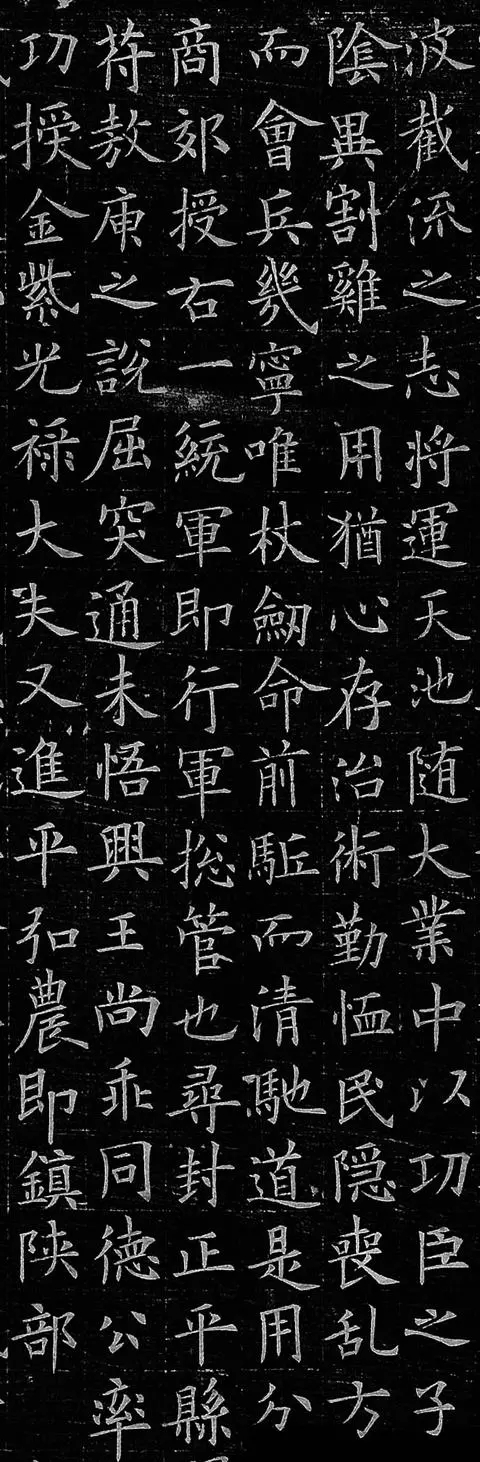 波截流之志将運天池随大業中以功臣之子
陰異割雞之用猶心存治術勤恤民隐喪乱方
而會兵幾寧唯杖劒命前駈而清馳道是用分
商郊授右一統軍即行軍捴管也尋封正平縣
苻敖庾之說屈突通未悟興王尚乖同德公率
功授金紫光禄大夫又進平弘農即鎮陜部